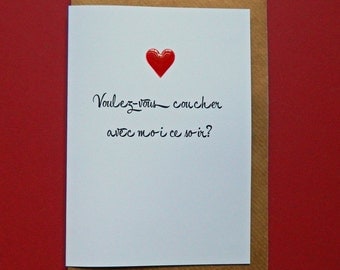 Voulez-vous coucher
avec moi ce soir?